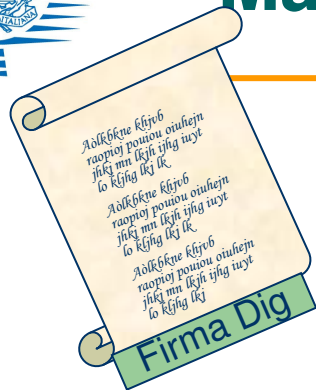 ITALIANA
Ma
Aölkbkne khjvb
raopioj pouiou oiuhejn
jhkj mn lkjh ijhg iuyt
lo kljhg lkj lk
Aölkbkne khjvb
raopioj pouiou oiuhejn
jhkj mn lkjh ijhg iuyt
lo kljhg lkj lk
Aölkbkne khjvb
raopioj pouiou oiuhejn
jhkj mn lkjh ijhg iuyt
lo kljhg lkj
Firma Dig